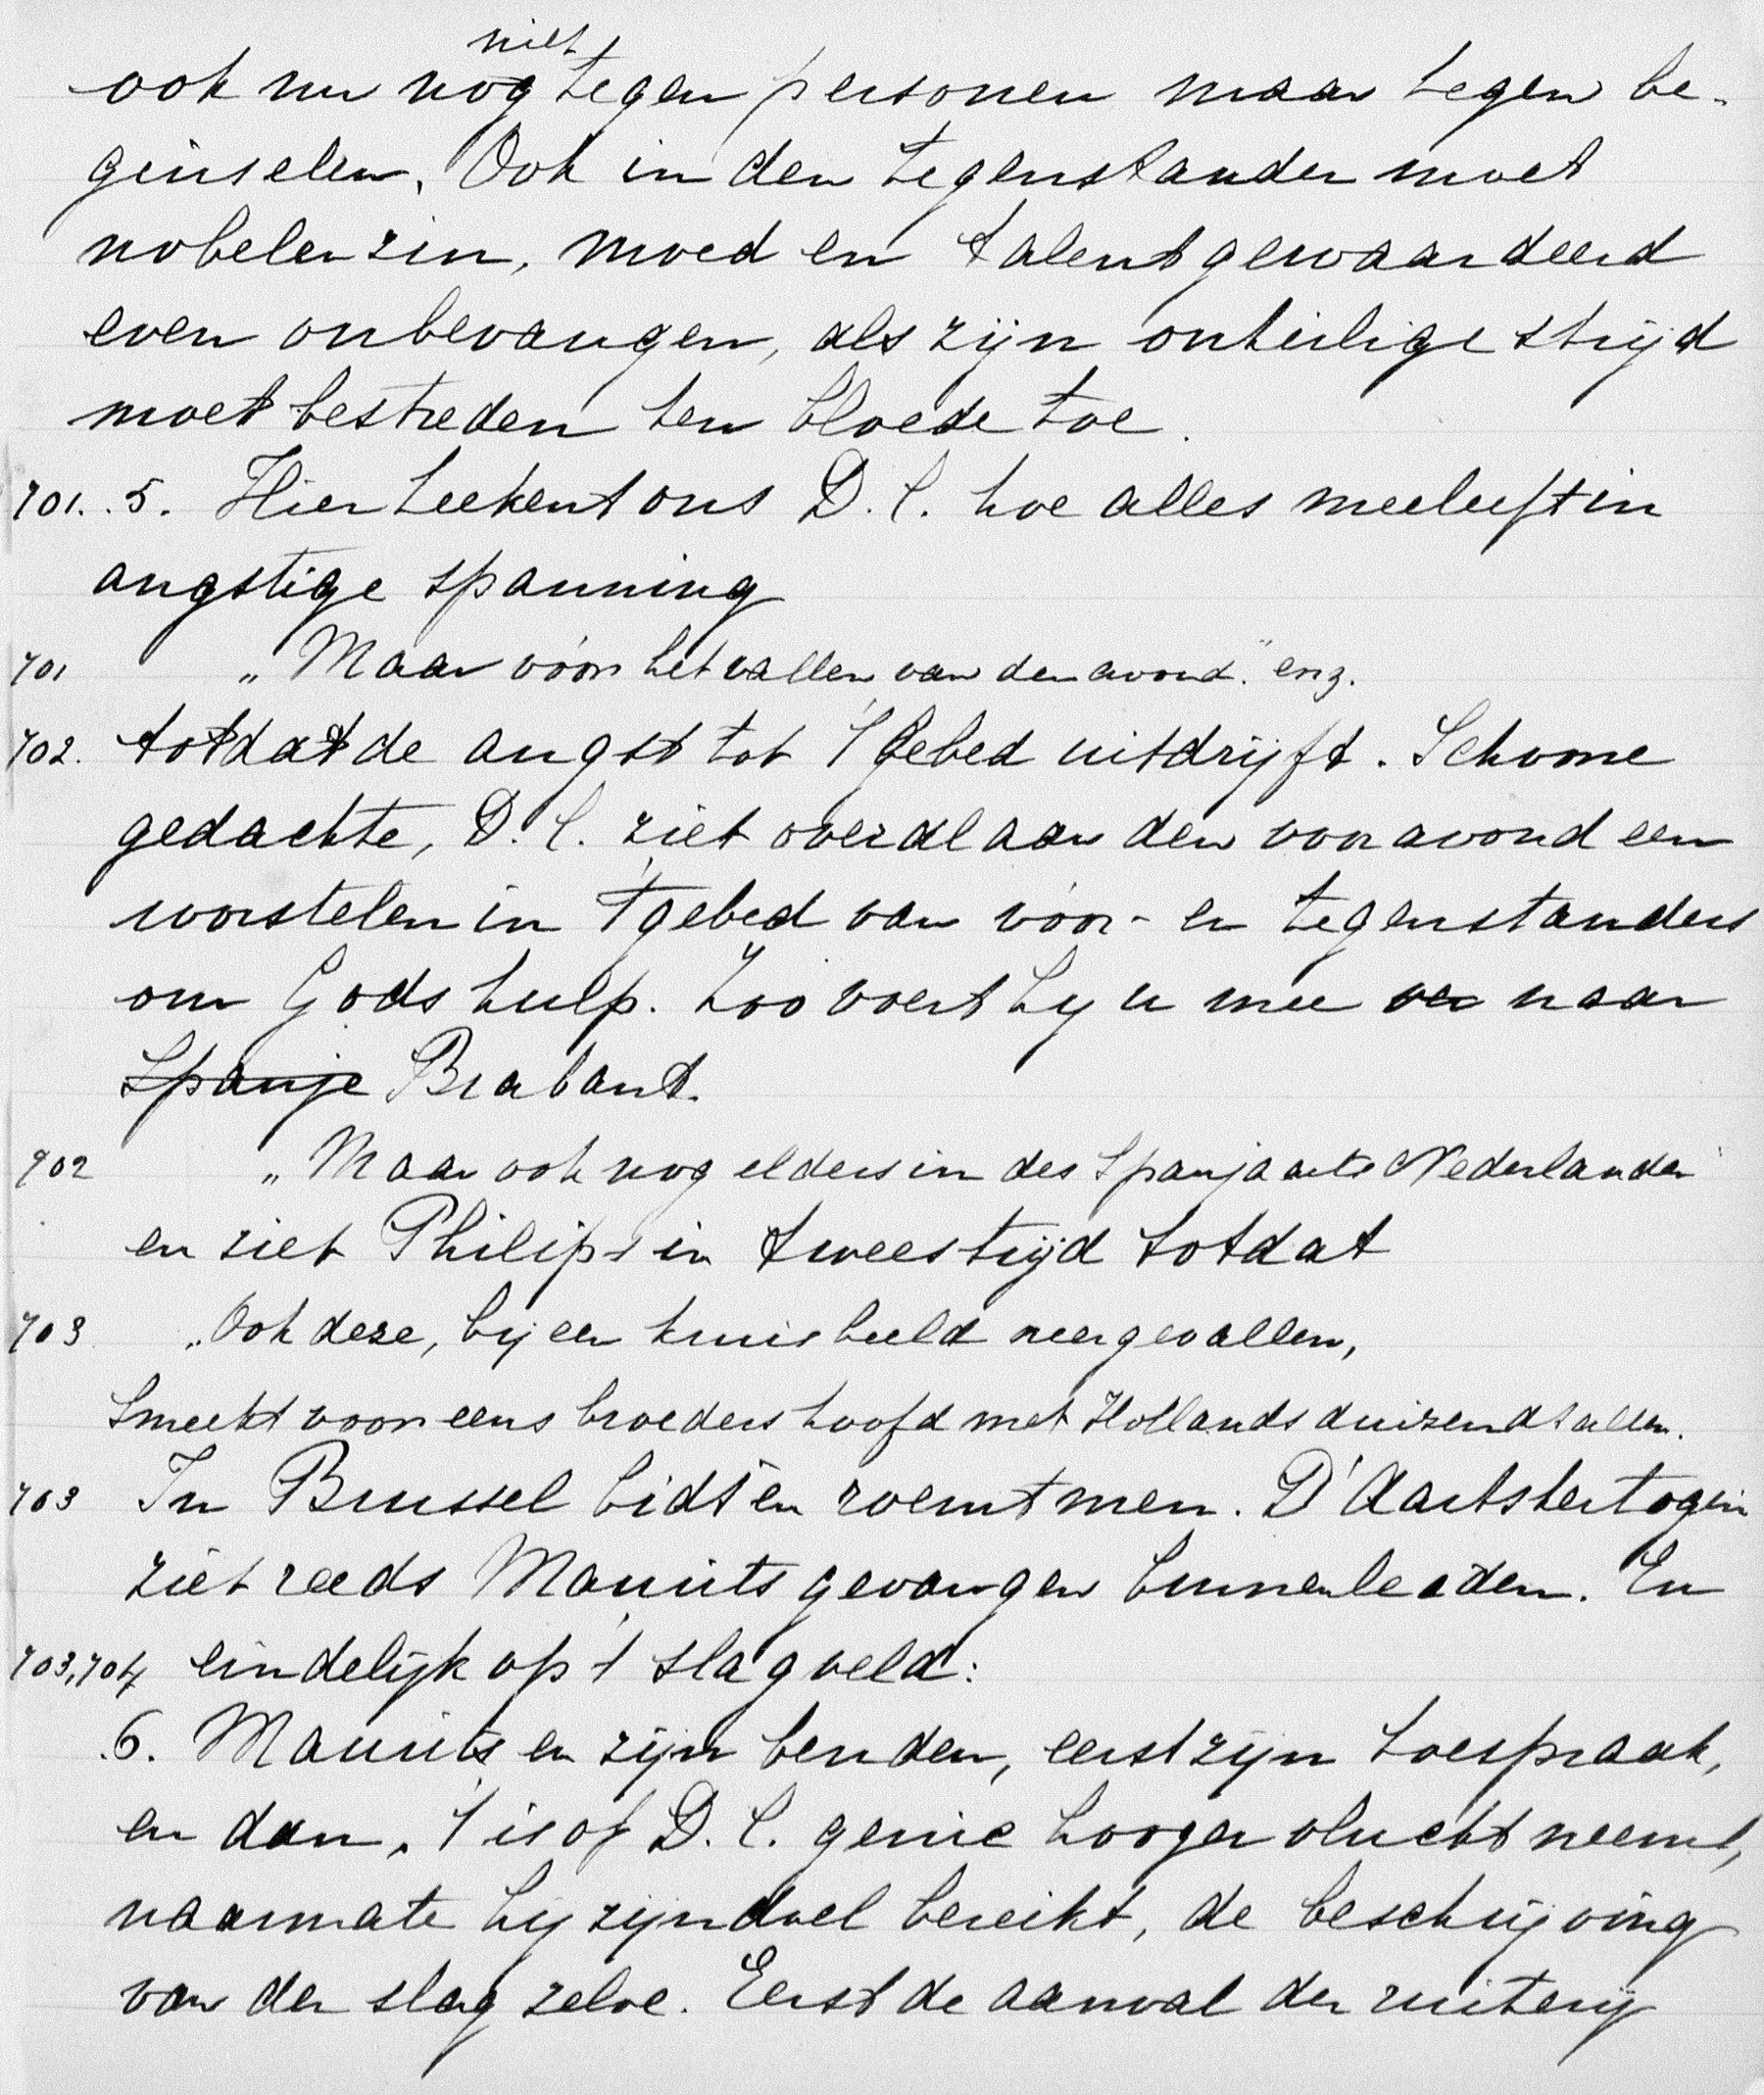 niet
ook nu nog tegen personen maar tegen be-
ginselen. Ook in den tegenstander moet
nobelen zin, moed en talent gewaardeerd
even onbevangen, als zijn onheilige strijd
moet bestreden ten bloede toe.
701. 5. Hier teekent ons D. C. hoe alles meeleeft in
angstige spanning
701 „Maar vóór het vallen van den avond." enz.
702. totdat de angst tot 't gebed uitdrijft. Schoone
gedachte, D. C. ziet overal aan den vooravond een
worstelen in 't gebed van vóór- en tegenstanders
om Gods hulp. Zoo voert hij u mee naar
Spanje Brabant.
702 „Maar ook nog elders in des Spanjaarts Nederlanden"
en ziet Philips in tweestrijd totdat
703 „Ook deze, bij een kruisbeeld neergevallen,
Smeekt voor eens broeders hoofd met Hollands duizendtallen.
703 In Brussel bidt en roemt men. D'Aartshertogin
ziet reeds Maurits gevangen binnenleiden. En
703,704 eindelijk op 't slagveld:
6. Maurits en zijn benden, eerst zijn toespraak,
en dan, 't is of D. C. genie hooger vlucht neemt,
naarmate hij zijn doel bereikt, de beschrijving
van den slag zelve. Eerst de aanval der ruiterij